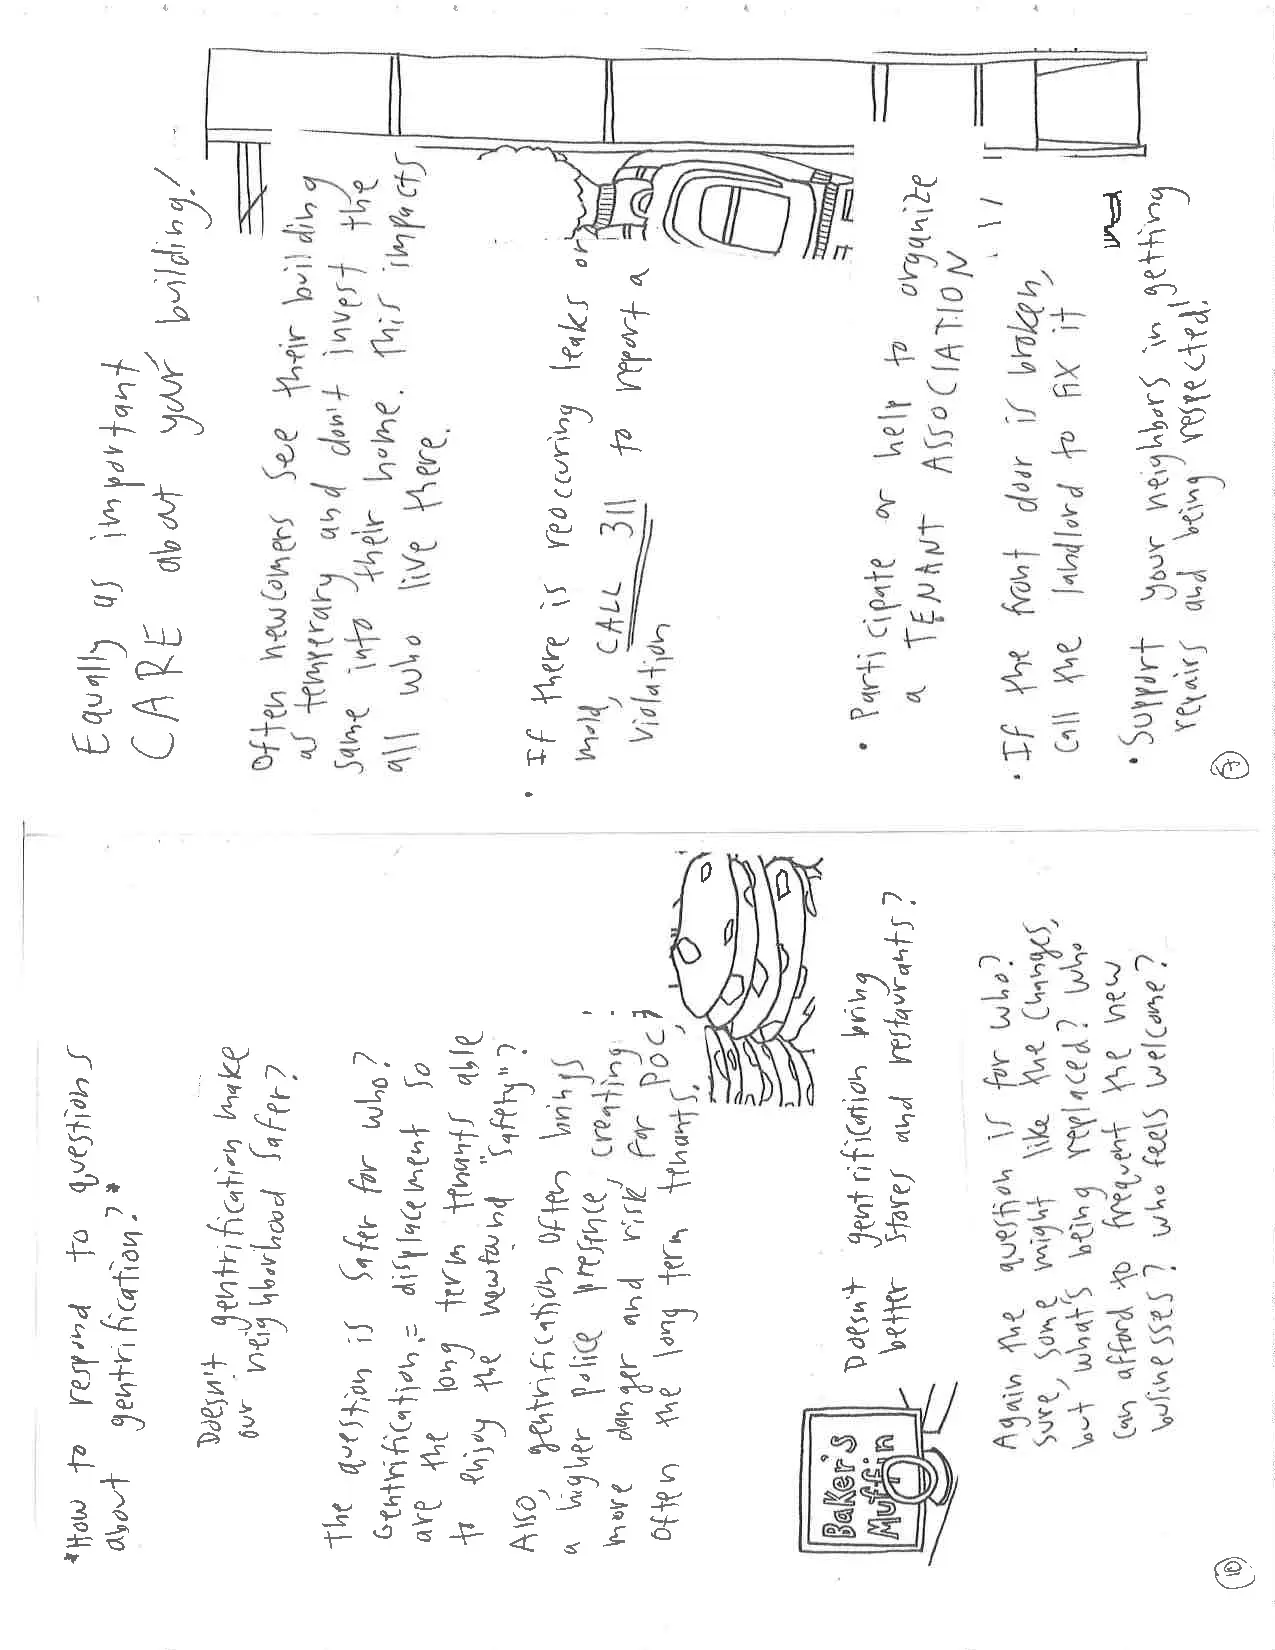 *How to respond to questions
about gentrification?*
Doesn't gentrification make
our neighborhood safer?
The question is safer for who?
Gentrification = displacement so
are the long term tenants able
to enjoy the newfound "safety"?
Also, gentrification often brings
a higher police presence, creating
more danger and risk for POC,
often the long term tenants.
Doesn't gentrification bring
better stores and restaurants?
Baker's
Muffin
Again the question is for who?
Sure, some might like the changes,
but what's being replaced? Who
can afford to frequent the new
businesses? Who feels welcome?
10
Equally as important
CARE about your building!
Often newcomers see their building
as temperary and don't invest the
same into their home. This impacts
all who live there.
• If there is reoccuring leaks or
mold, CALL 311 to report a
violation
• Participate or help to organize
a TENANT ASSOCIATION
• If the front door is broken,
call the landlord to fix it
• Support your neighbors in getting
repairs and being respected!
7